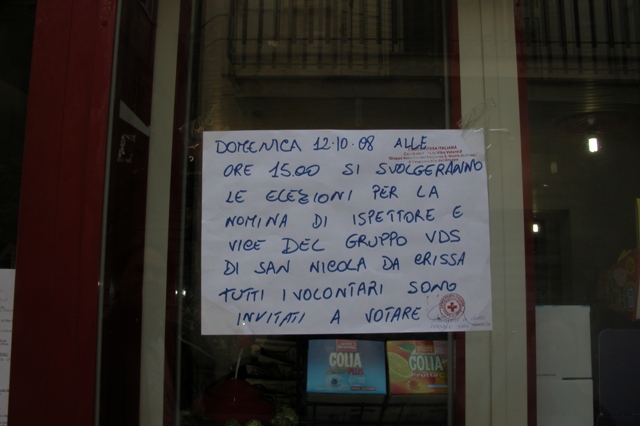 DOMENICA 12·10·08 ALLE
ORE 15.00 SI SVOLGERANNO
LE ELEZIONI PER LA
NOMINA DI ISPETTORE E
VICE DEL GRUPPO VDS
DI SAN NICOLA DA CRISSA
TUTTI I VOLONTARI SONO
INVITATI A VOTARE
COLIA
COLIA